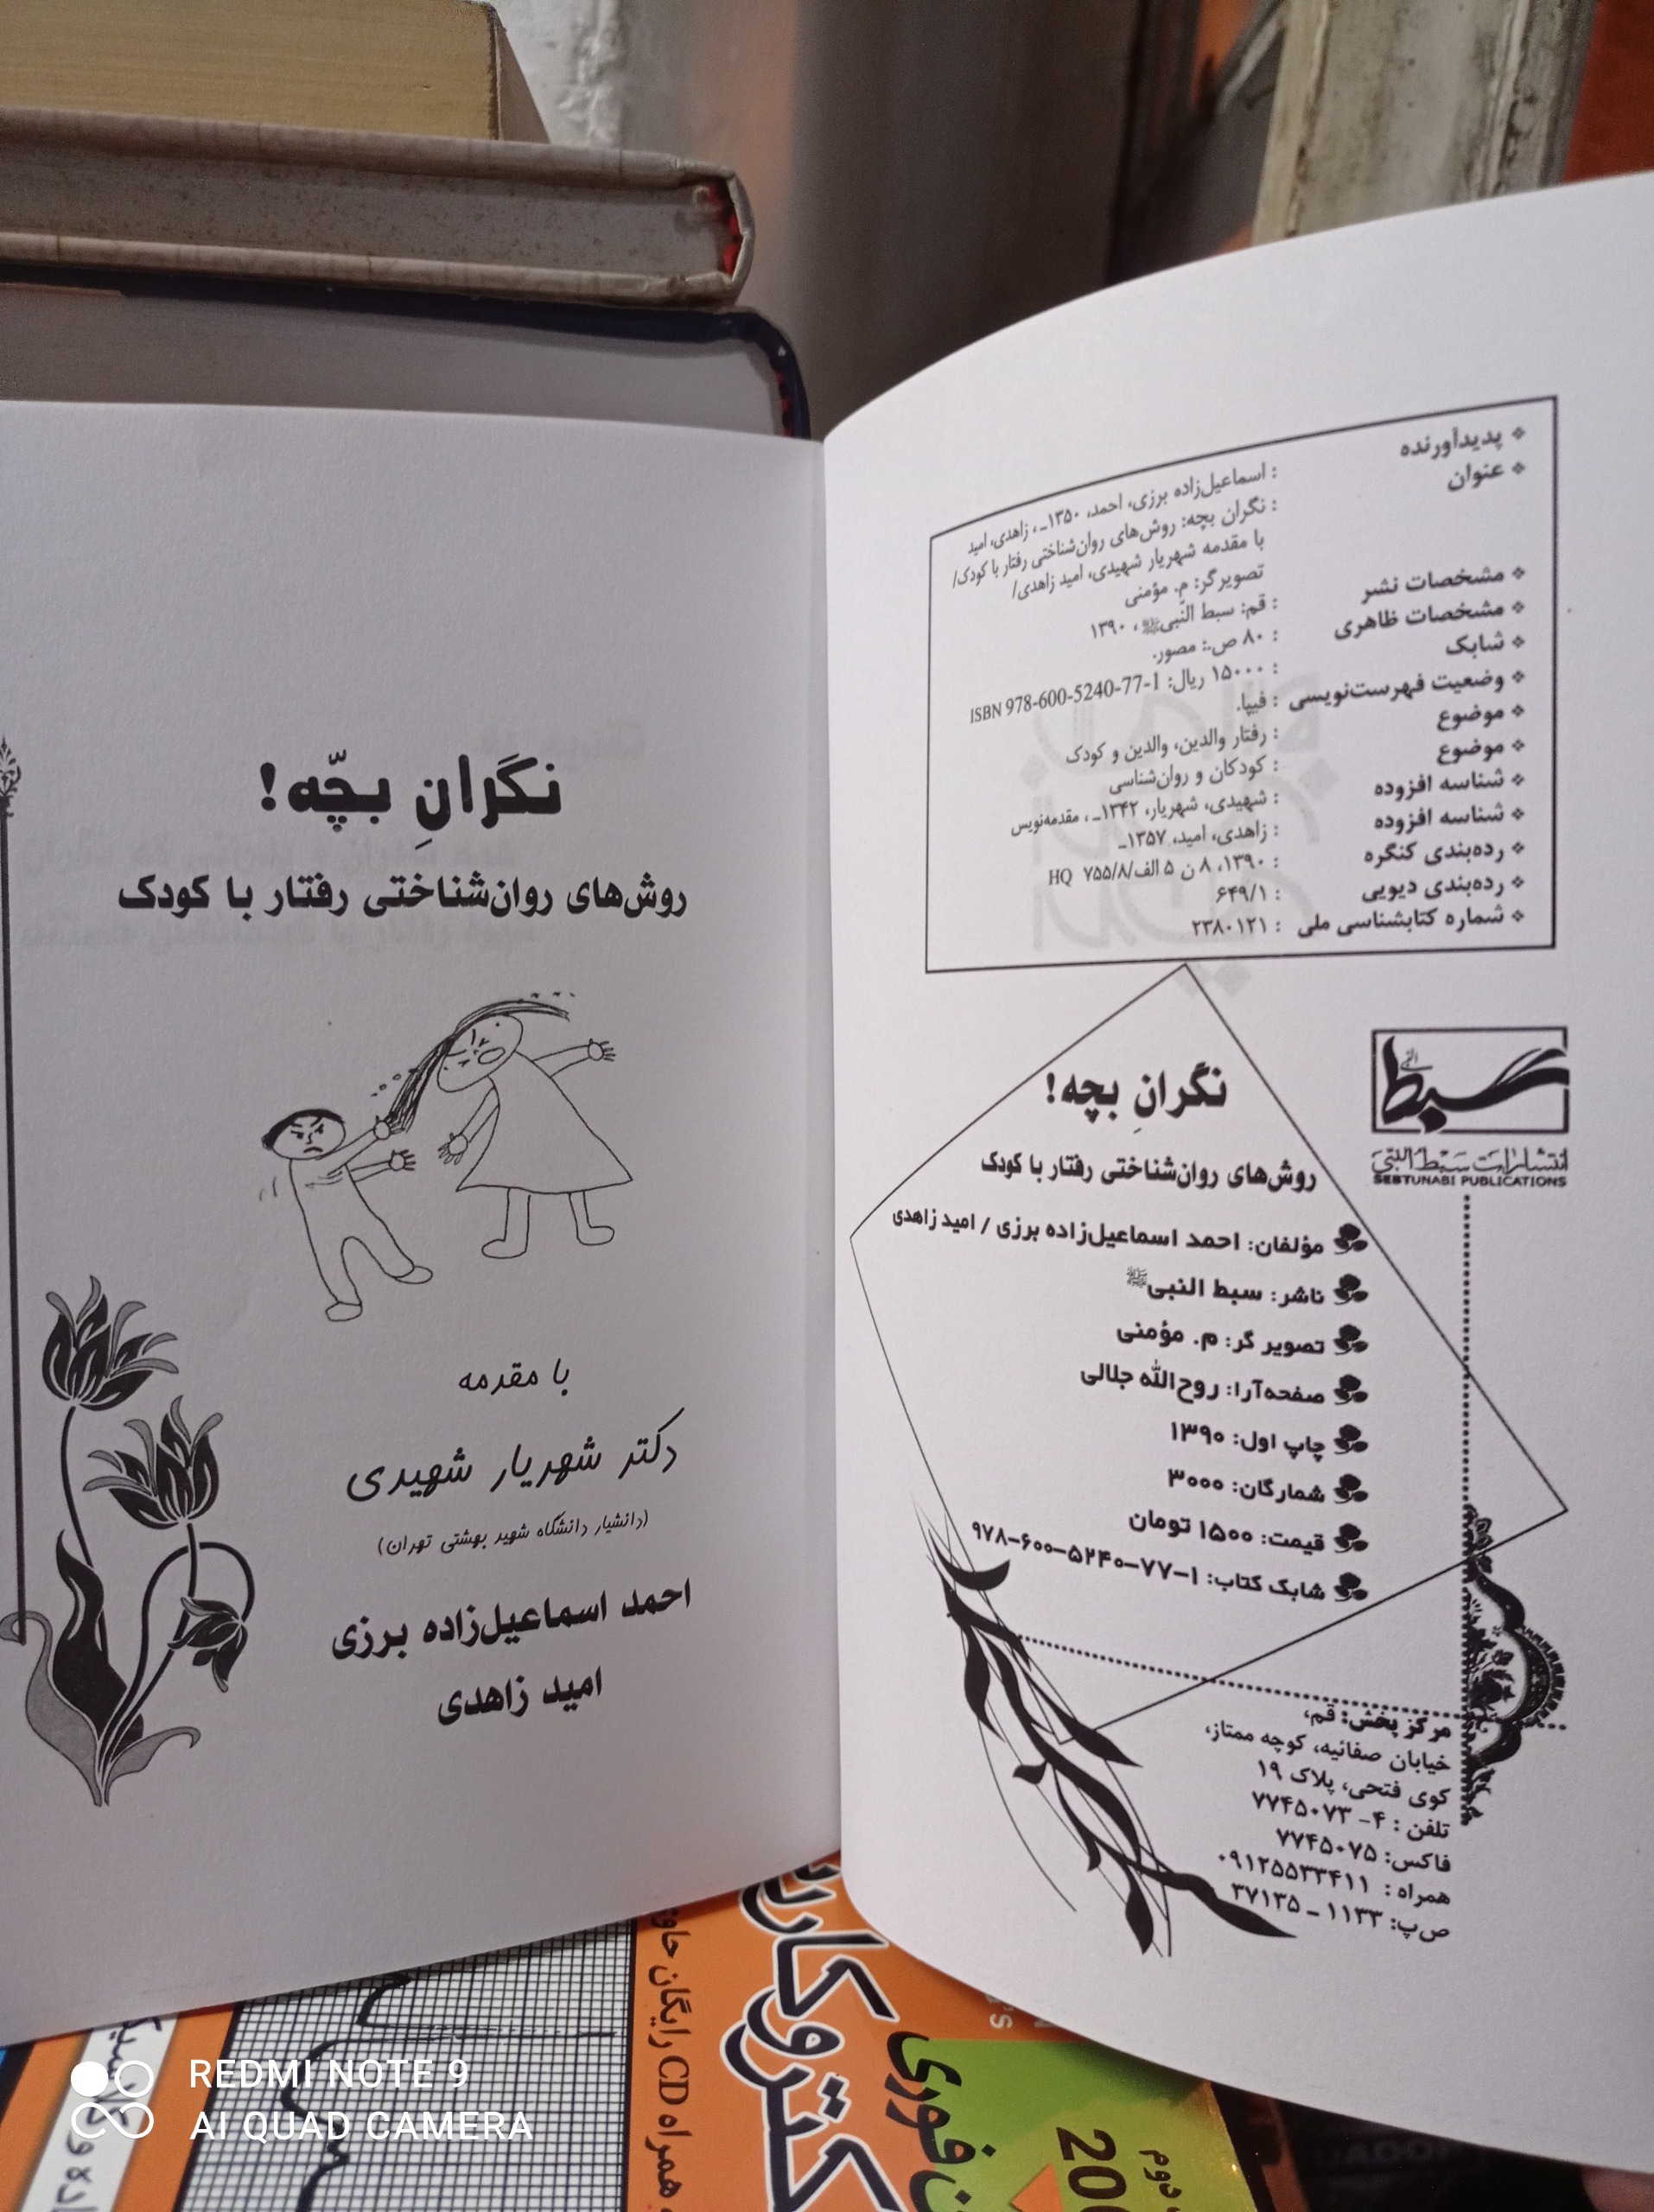 ❖ پدیدآورنده : اسماعیل‌زاده برزی، احمد، ۱۳۵۰ـ ، زاهدی، امید
❖ عنوان : نگران بچه: روش‌های روان‌شناختی رفتار با کودک/
با مقدمه شهریار شهیدی، امید زاهدی/
تصویرگر: م. مؤمنی
❖ مشخصات نشر : قم: سبط النّبی ﷺ ، ۱۳۹۰
❖ مشخصات ظاهری : ۸۰ ص.: مصور.
❖ شابک : ۱۵۰۰۰ ریال: ISBN 978-600-5240-77-1
❖ وضعیت فهرست‌نویسی : فیپا.
❖ موضوع : رفتار والدین، والدین و کودک
❖ موضوع : کودکان و روان‌شناسی
❖ شناسه افزوده : شهیدی، شهریار، ۱۳۴۲ـ ، مقدمه‌نویس
❖ شناسه افزوده : زاهدی، امید، ۱۳۵۷ـ
❖ رده‌بندی کنگره : ۱۳۹۰، ۸ ن ۵ الف/۷۵۵/۸ HQ
❖ رده‌بندی دیویی : ۶۴۹/۱
❖ شماره کتابشناسی ملی : ۲۳۸۰۱۲۱
سبط النبی
انتشارات سبط النبی
SEBTUNABI PUBLICATIONS
نگرانِ بچه!
روش‌های روان‌شناختی رفتار با کودک
مؤلفان: احمد اسماعیل‌زاده برزی / امید زاهدی
ناشر: سبط النبی ﷺ
تصویر گر: م. مؤمنی
صفحه‌آرا: روح‌الله جلالی
چاپ اول: ۱۳۹۰
شمارگان: ۳۰۰۰
قیمت: ۱۵۰۰ تومان
شابک کتاب: ۱-۷۷-۵۲۴۰-۶۰۰-۹۷۸
مرکز پخش: قم،
خیابان صفائیه، کوچه ممتاز،
کوی فتحی، پلاک ۱۹
تلفن : ۴- ۷۷۴۵۰۷۳
فاکس: ۷۷۴۵۰۷۵
همراه : ۰۹۱۲۵۵۳۳۴۱۱
ص‌پ: ۱۱۳۳ ـ ۳۷۱۳۵
نگرانِ بچّه!
روش‌های روان‌شناختی رفتار با کودک
با مقدمه
دکتر شهریار شهیدی
(دانشیار دانشگاه شهید بهشتی تهران)
احمد اسماعیل‌زاده برزی
امید زاهدی
همراه CD رایگان حاوی
دوم
REDMI NOTE 9
AI QUAD CAMERA